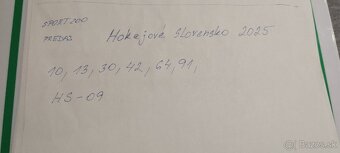 SPORTZOO
PREDAJ
Hokejové Slovensko 2025
10, 13, 30, 42, 64, 91,
HS-09
bazos.sk